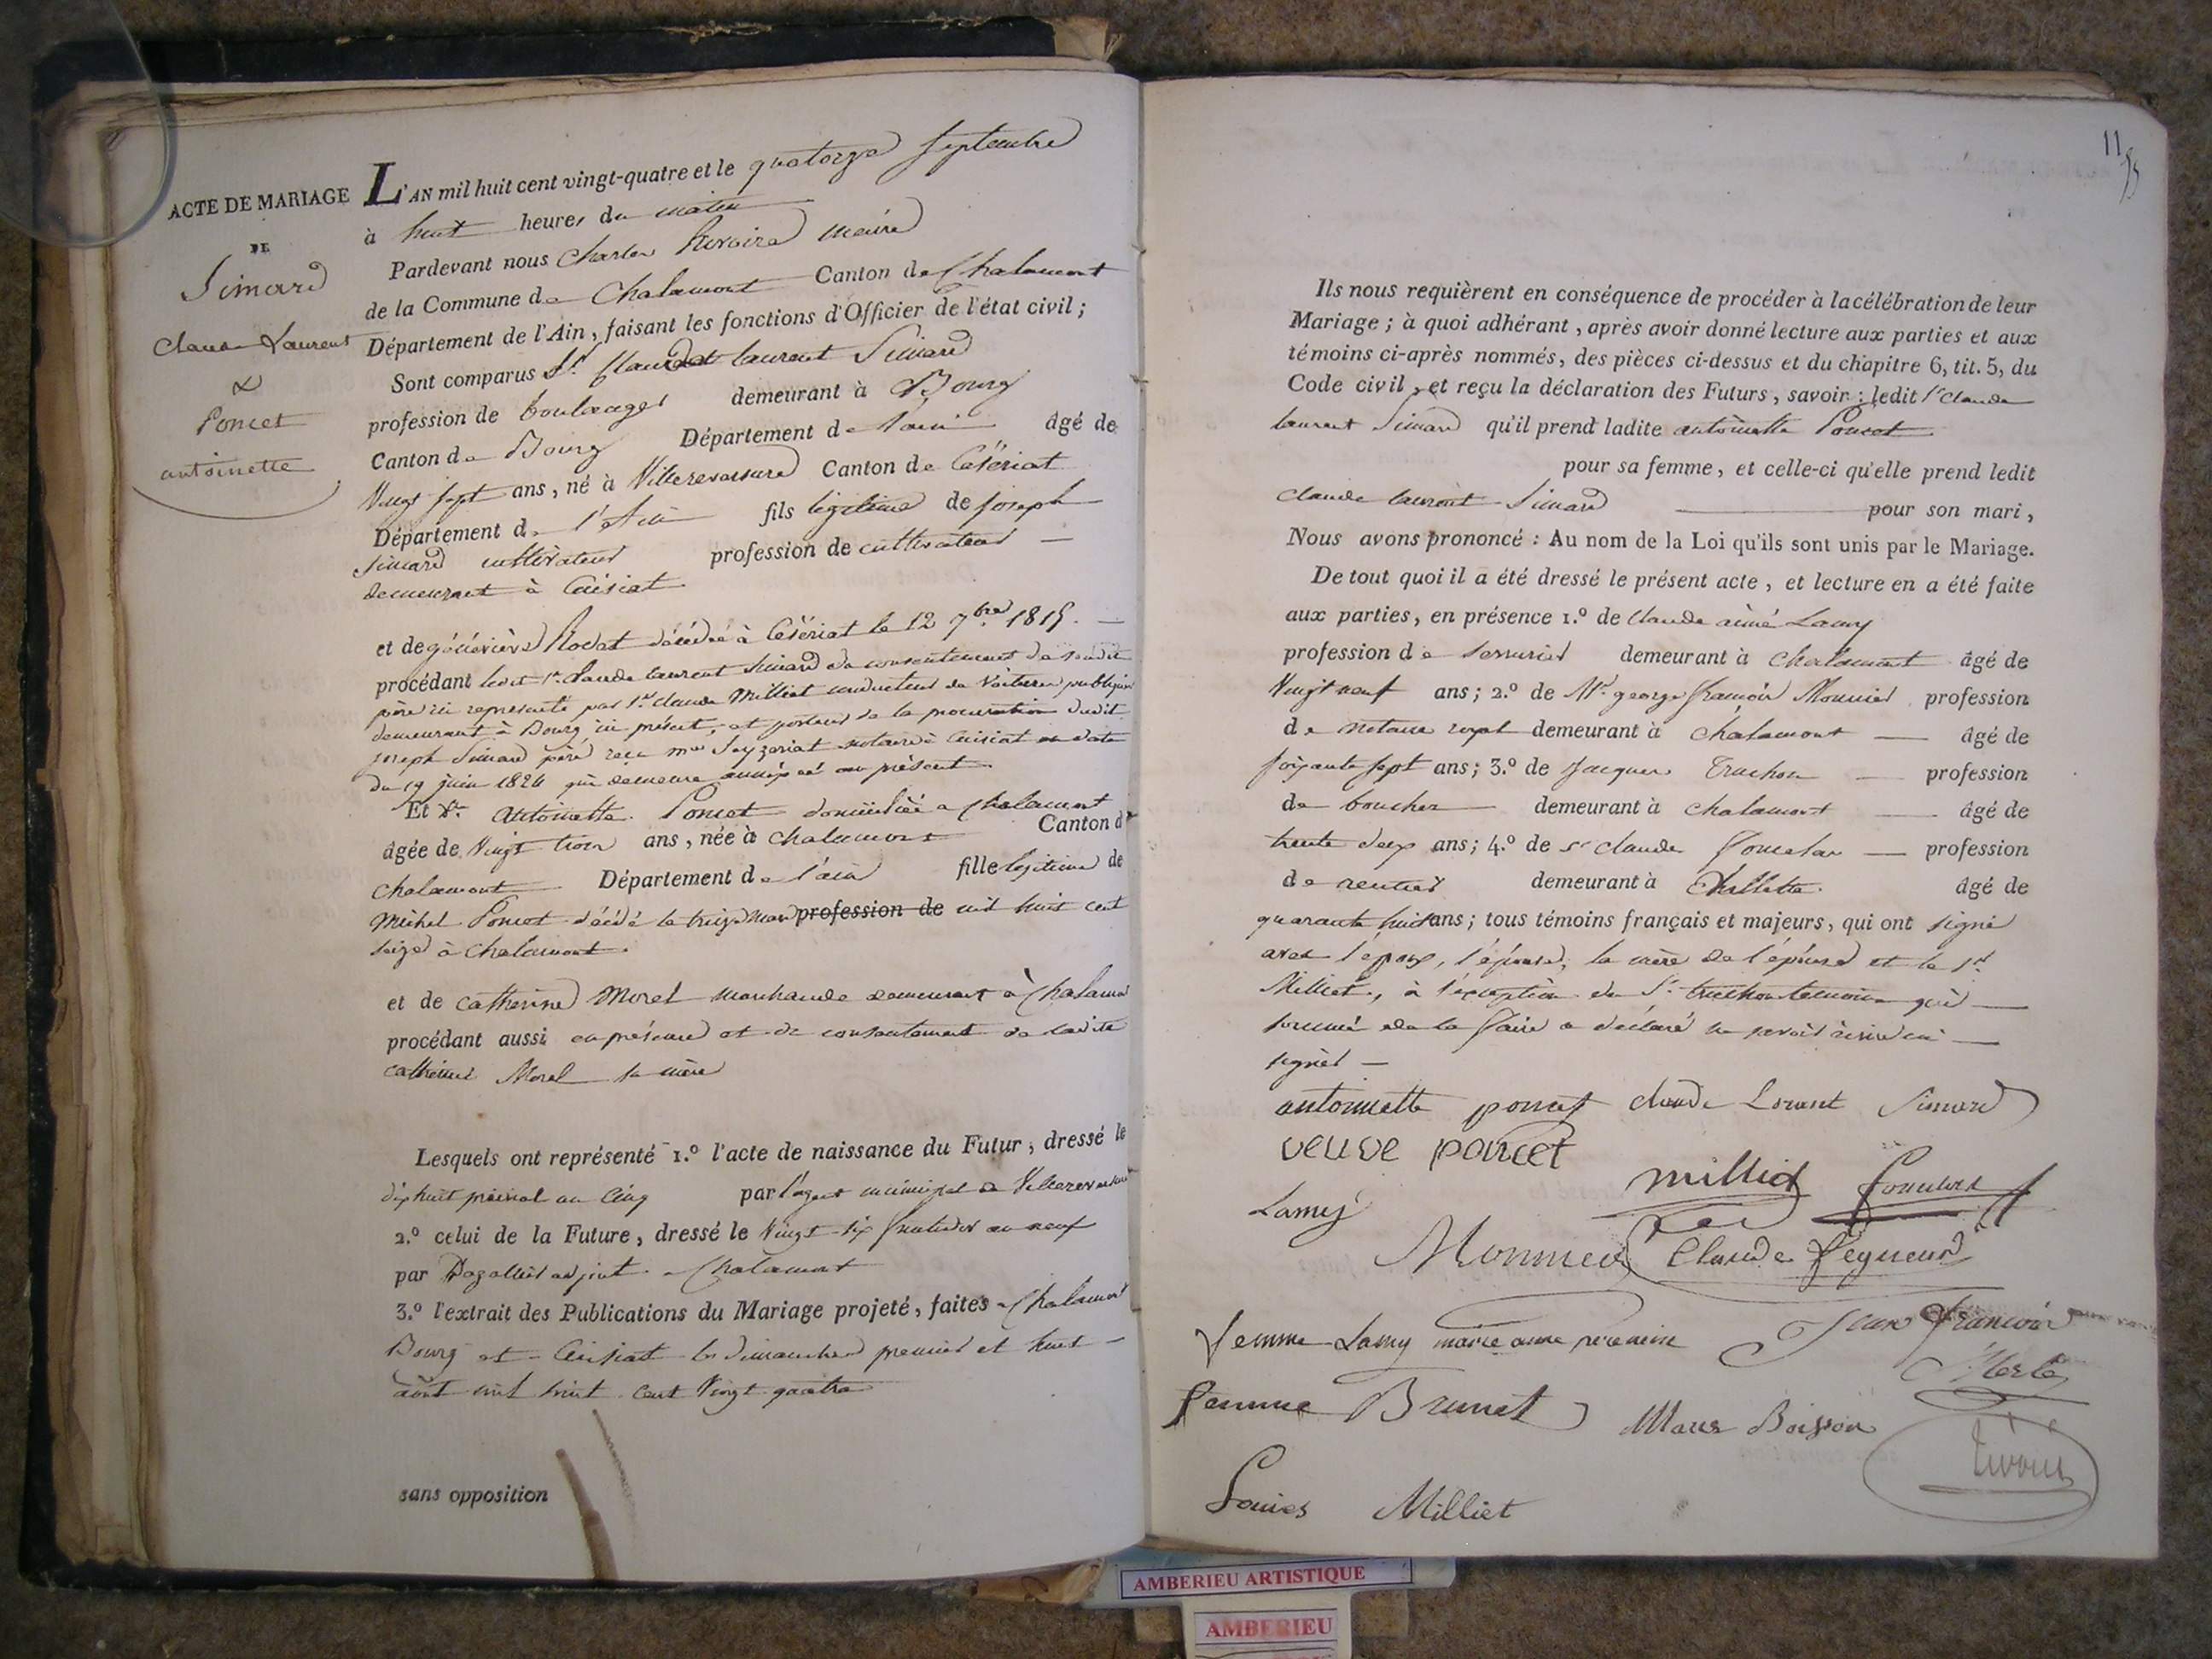 ACTE DE MARIAGE
DE
Simard
Claude Laurent
&
Poncet
antoinette
L'AN mil huit cent vingt-quatre et le quatorze septembre
à huit heures du matin
Pardevant nous Charles maire
de la Commune de Chalamont Canton de Chalamont
Département de l'Ain, faisant les fonctions d'Officier de l'état civil;
Sont comparus Sr. Claude laurent Simard
profession de boulanger demeurant à Bourg
Canton de Bourg Département de l'ain âgé de
Vingt sept ans, né à Villereversure Canton de Céseriat
Département de l'Ain fils légitime de joseph
simard cultivateur profession de cultivateur
demeurant à Cuisiat
et de géneviève Rodat décédée à Céseriat le 12 7bre 1815.
procédant ledit Sr. Claude laurent Simard du consentement de son dit
père ici représenté par Sr. Claude Milliet conducteur de Voitures publiques
demeurant à Bourg ici présent, et porteur de la procuration dudit
joseph Simard père reçu me notaire à Cuisiat en date
du 19 juin 1824 qui demeure annexée au présent
Et antoinette Poncet domiciliée a Chalamont
âgée de Vingt trois ans, née à Chalamont Canton de
Chalamont Département de l'ain fille légitime de
Michel Poncet décédé le treize mars profession de mil huit cent
seize à Chalamont.
et de Catherine Morel marchande demeurant à Chalamont
procédant aussi en présence et du consentement de ladite
Catherine Morel sa mère
Lesquels ont représenté 1.º l'acte de naissance du Futur, dressé le
dix huit prairial an Cinq par l'agent municipal de Villereversure
2.º celui de la Future, dressé le Vingt six fructidor an neuf
par adjoint a Chalamont
3.º l'extrait des Publications du Mariage projeté, faites a Chalamont
Bourg et Cuisiat les dimanches premier et huit
août mil huit cent Vingt quatre
sans opposition
11
Ils nous requièrent en conséquence de procéder à la célébration de leur
Mariage; à quoi adhérant, après avoir donné lecture aux parties et aux
témoins ci-après nommés, des pièces ci-dessus et du chapitre 6, tit. 5, du
Code civil, et reçu la déclaration des Futurs, savoir: ledit Sr Claude
laurent Simard qu'il prend ladite antoinette Poncet
pour sa femme, et celle-ci qu'elle prend ledit
claude laurent Simard pour son mari,
Nous avons prononcé: Au nom de la Loi qu'ils sont unis par le Mariage.
De tout quoi il a été dressé le présent acte, et lecture en a été faite
aux parties, en présence 1.º de Claude aimé Lamy
profession de serrurier demeurant à Chalamont âgé de
Vingt neuf ans; 2.º de Mr. george françois Monnier profession
de notaire royal demeurant à Chalamont âgé de
soixante sept ans; 3.º de Jacques Truchon profession
de boucher demeurant à Chalamont âgé de
trente deux ans; 4.º de Sr claude profession
de rentier demeurant à âgé de
quarante huit ans; tous témoins français et majeurs, qui ont signé
avec l'époux, l'épouse, la mère de l'épouse et le Sr.
Milliet, à l'exception du Sr. truchon témoin qui
sommé de le faire a déclaré ne savoir écrire ni
signer
antoinette poncet claude Lorent Simard
veuve poncet
milliet
Lamy
Monnier Claude
femme Lamy marie anne
Jean François
Merle
femme Brunet Marie Boisson
Louis Milliet
AMBERIEU ARTISTIQUE
AMBERIEU